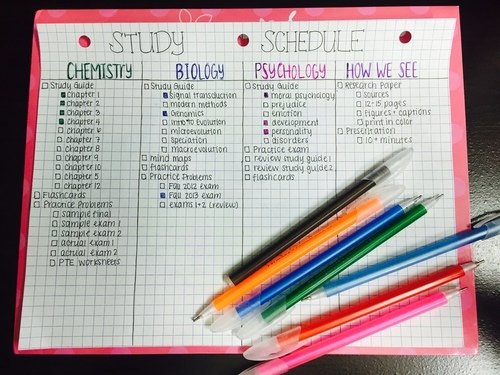 STUDY SCHEDULE
CHEMISTRY
Study Guide
Chapter 1
Chapter 2
Chapter 3
Chapter 6
Chapter 7
Chapter 8
Chapter 9
chapter 10
chapter 5
chapter 12
Flashcards
Practice Problems
Sample Final
Sample Exam 1
Sample Exam 2
actual exam 1
actual exam 2
PTE Worksheets
BIOLOGY
Study Guide
Signal transduction
modern methods
Genomics
intro to Evolution
microevolution
speciation
macroevolution
mind maps
flashcards
Practice Problems
Fall 2012 exam
Fall 2013 exam
exams 1+2 (review)
PSYCHOLOGY
Study Guide
moral psychology
prejudice
emotion
development
personality
disorders
Practice Exam
review study guide 1
review study guide 2
flashcards
HOW WE SEE
Research Paper
sources
12-15 pages
figures + captions
print in color
Presentation
10+ minutes